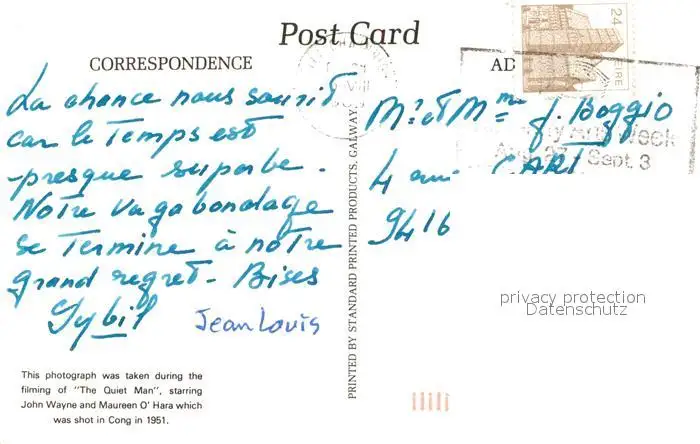 Post Card
CORRESPONDENCE
AD
24
EIRE
La chance nous sourit
car le Temps est
presque superbe.
Notre vagabondage
se Termine à notre
grand regret. Bises
Sybil
Jean Louis
Mr et Mme J. Boggio
Week
Sept. 3
4
9416
privacy protection
Datenschutz
PRINTED BY STANDARD PRINTED PRODUCTS, GALWAY.
This photograph was taken during the
filming of "The Quiet Man", starring
John Wayne and Maureen O' Hara which
was shot in Cong in 1951.